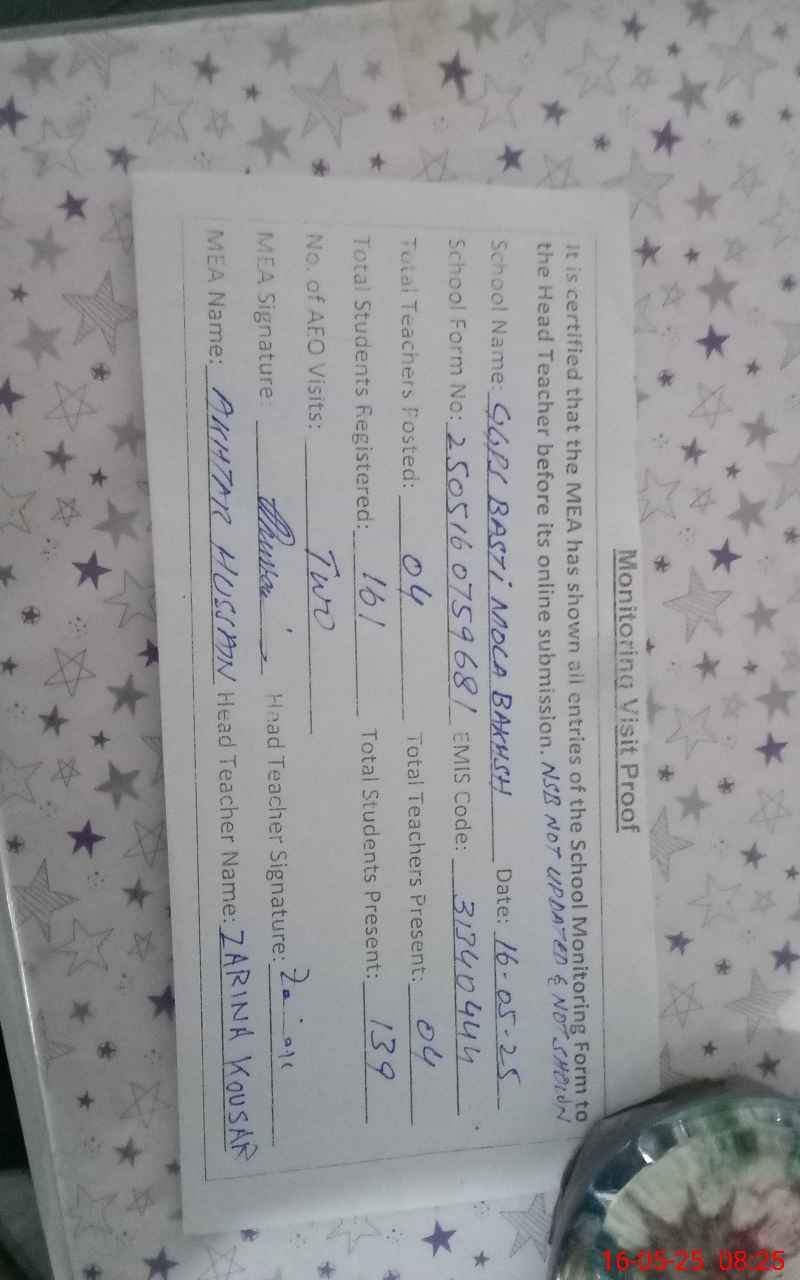 Monitoring Visit Proof
It is certified that the MEA has shown all entries of the School Monitoring Form to
the Head Teacher before its online submission. NSB NOT UPDATED & NOT SHOWN
School Name: GGPS BASTI MOLA BAKHSH Date: 16-05-25
School Form No: 250516075968 1 EMIS Code: 31340444
Total Teachers Posted: 04 Total Teachers Present: 04
Total Students Registered: 161 Total Students Present: 139
No. of AEO Visits: Two
MEA Signature: Head Teacher Signature:
MEA Name: AKHTAR HUSSAIN Head Teacher Name: ZARINA KOUSAR
16-05-25 08:25